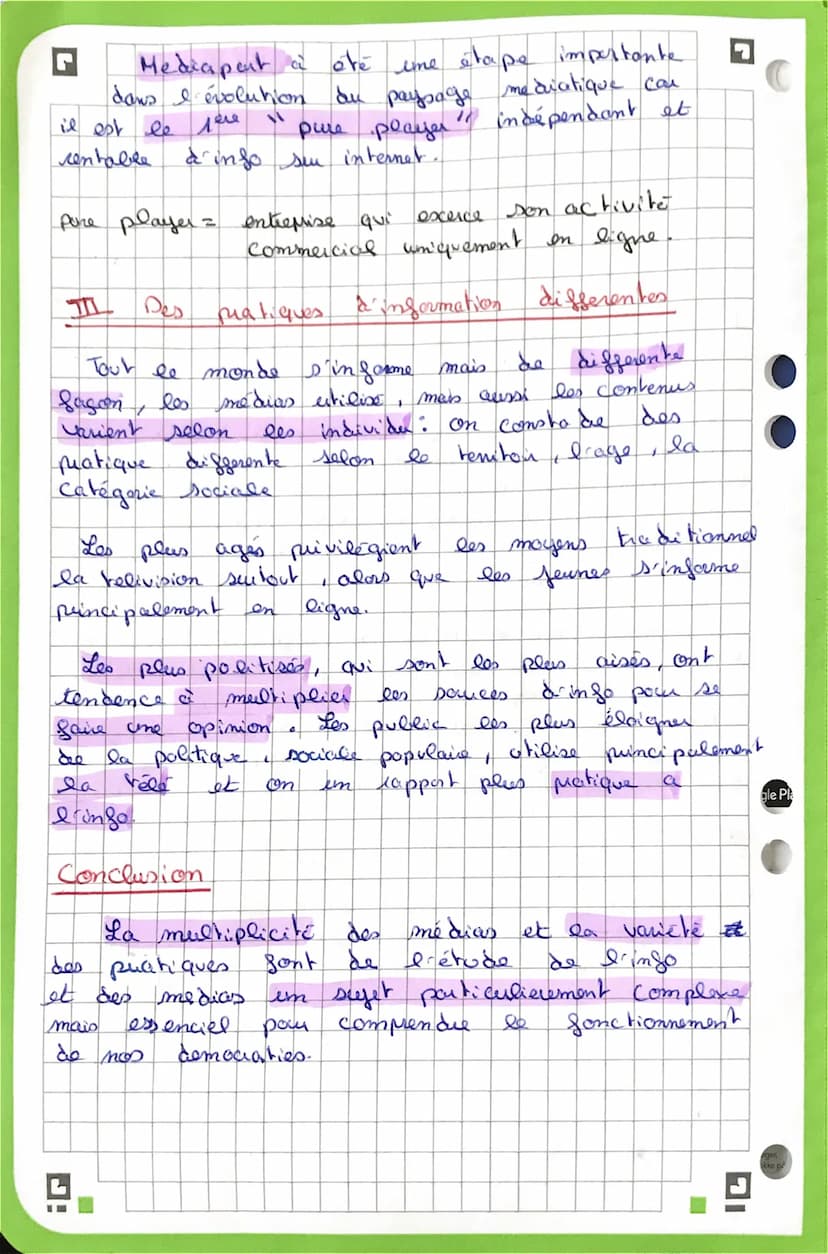 Mediapart à été une étape importante
dans l'évolution du paysage mediatique car
il est le 1ere "pure player" indépendant et
rentable d'info sur internet.
pure player = entreprise qui excerce son activité
commercial uniquement en ligne.
III Des pratiques d'information differentes
Tout le monde s'informe mais de differente
façon, les médias utilisé, mais aussi les contenus
varient selon les individu : on constate des
pratique differente selon le territoir, l'age, la
catégorie sociale
Les plus agés privilégient les moyens traditionnel
la television surtout, alors que les jeunes s'informe
principalement en ligne.
Les plus politisés, qui sont les plus aisés, ont
tendence à multiplier les sources d'info pour se
faire une opinion. Les public les plus éloigner
de la politique, sociale populaire, utilise principalement
la télé et on un rapport plus pratique a
l'info.
Conclusion
La multiplicité des médias et la variété
des pratiques font de l'étude de l'info
et des medias un sujet particulierement complexe
mais essenciel pour comprendre le fonctionnement
de nos democraties.
gle Pla